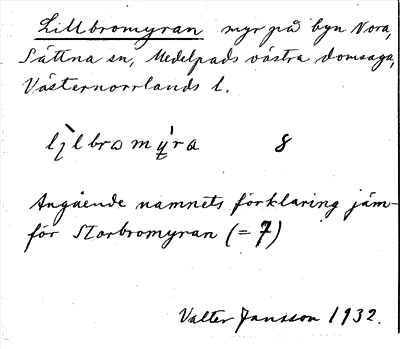 Lillbromyran myr på byn Nora,
Sättna sn, Medelpads västra domsaga,
Västernorrlands l.
8
Angående namnets förklaring jäm-
för Storbromyran (= 7)
Valter Jansson 1932.